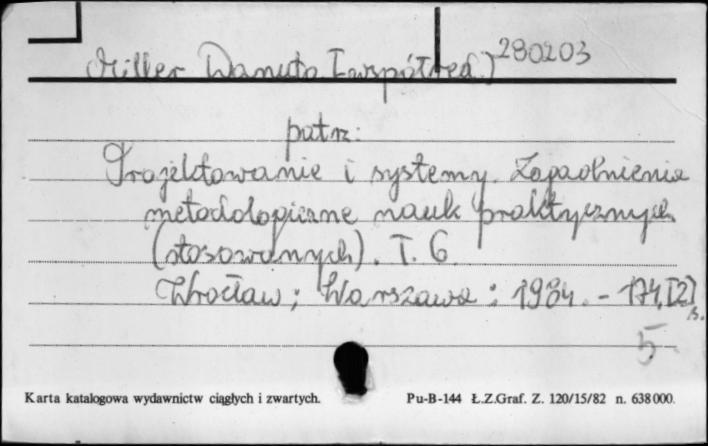 Miller Danuta [współred.] 280203
patrz:
Projektowanie i systemy. Zagadnienia
metodologiczne nauk praktycznych
(stosowanych). T. 6
Wrocław; Warszawa: 1984. - 174, [2]
s.
5
Karta katalogowa wydawnictw ciągłych i zwartych. Pu-B-144 Ł.Z.Graf. Z. 120/15/82 n. 638000.